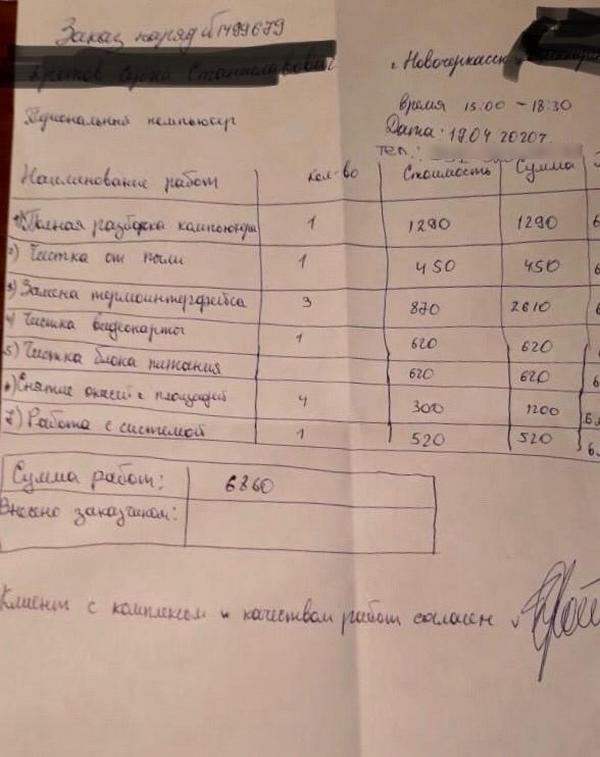 Заказ наряд № 1499679
г. Новочеркасск
время 15:00 - 18:30
Дата: 19.04.2020г.
тел.:
компьютер
Наименование работ кол-во Стоимость Сумма
1) Полная разборка компьютера 1 1290 1290
2) Чистка от пыли 1 450 450
3) Замена термоинтерфейса 3 870 2610
4) Чистка видеокарты 1 620 620
5) Чистка блока питания 620 620
6) Снятие окисей с площадей 4 300 1200
7) Работа с системой 1 520 520
Сумма работ: 6860
Внесено заказчиком:
Клиент с комплексом и качеством работ согласен